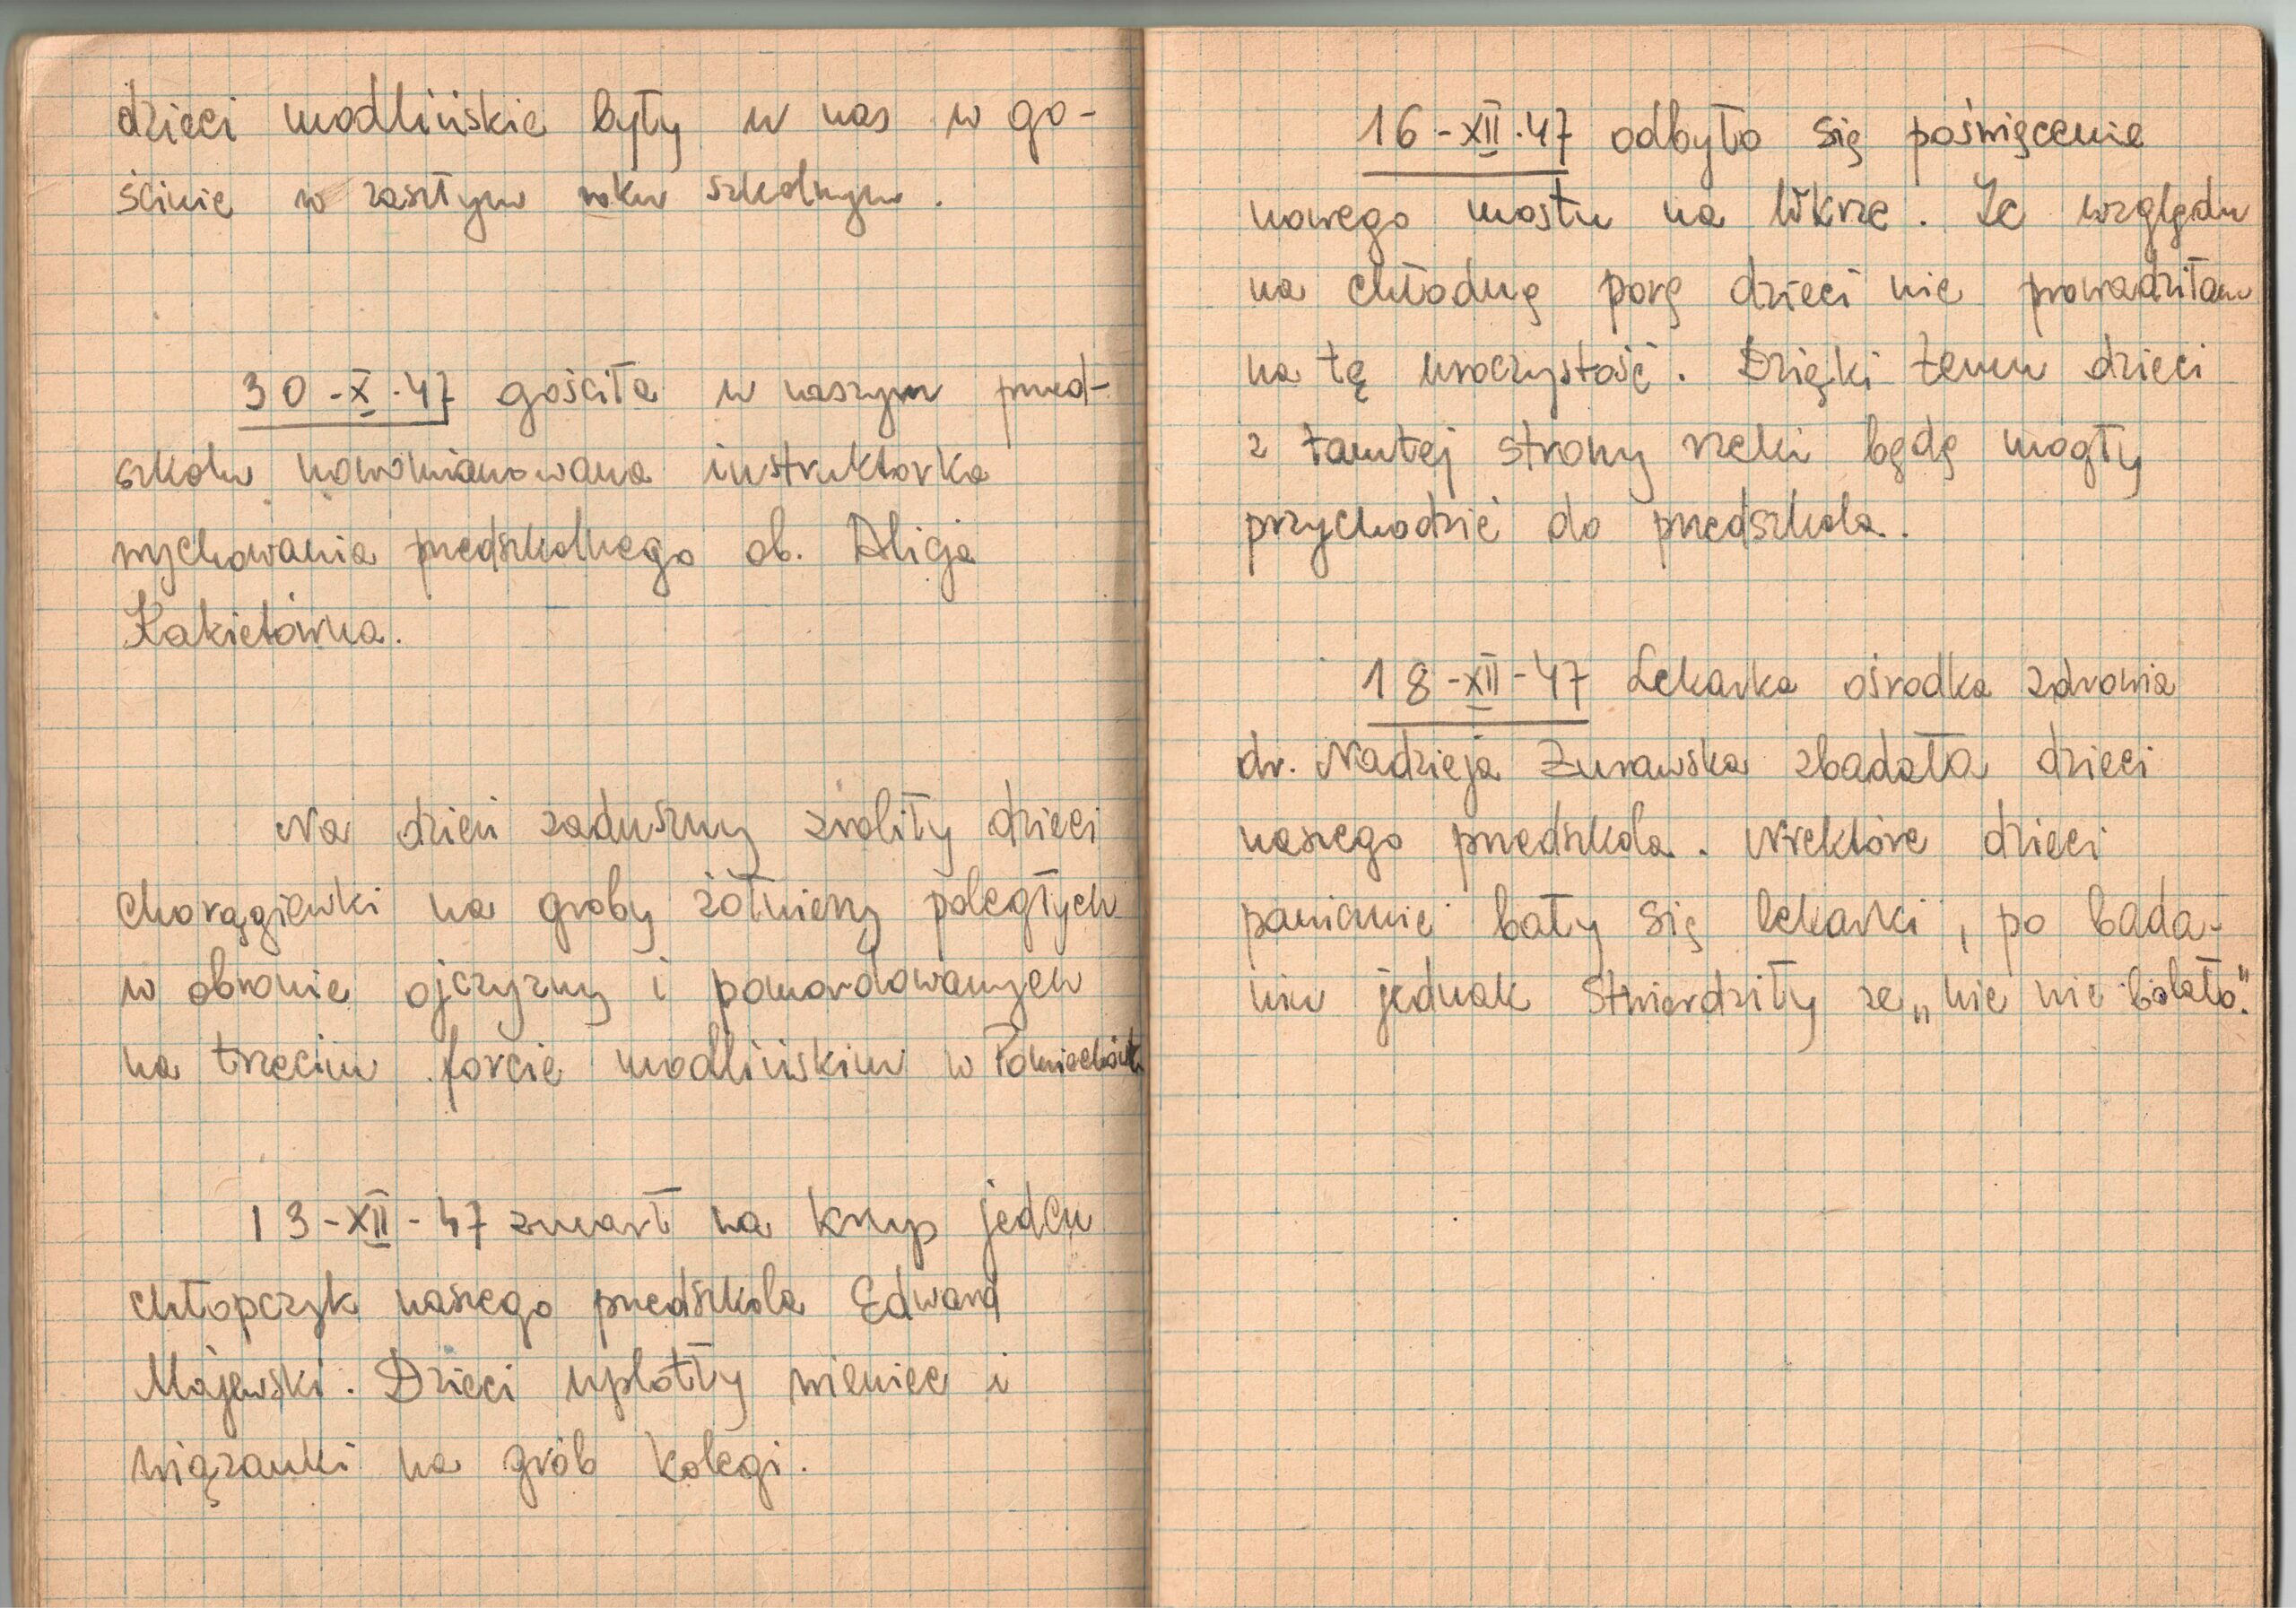 dzieci modlińskie były u nas w go-
ścinie w zaszłym roku szkolnym.
30-X-47 gościła w naszym przed-
szkolu nowomianowana instruktorka
wychowania przedszkolnego ob. Alicja
Kakietówna.
Na dzień zaduszny zrobiły dzieci
chorągiewki na groby żołnierzy poległych
w obronie ojczyzny i pomordowanych
na trzecim forcie modlińskim w Pomiechówk
13-XII-47 zmarł na krup jeden
chłopczyk naszego przedszkola Edward
Majewski. Dzieci uplotły wieniec i
wiązanki na grób kolegi.
16-XII-47 odbyło się poświęcenie
nowego mostu na Wkrze. Ze względu
na chłodną porę dzieci nie prowadziłam
na tę uroczystość. Dzięki temu dzieci
z tamtej strony rzeki będą mogły
przychodzić do przedszkola.
18-XII-47 Lekarka ośrodka zdrowia
dr. Nadzieja Żurawska zbadała dzieci
naszego przedszkola. Niektóre dzieci
panicznie bały się lekarki, po bada-
niu jednak stwierdziły że „nic nie bolało."